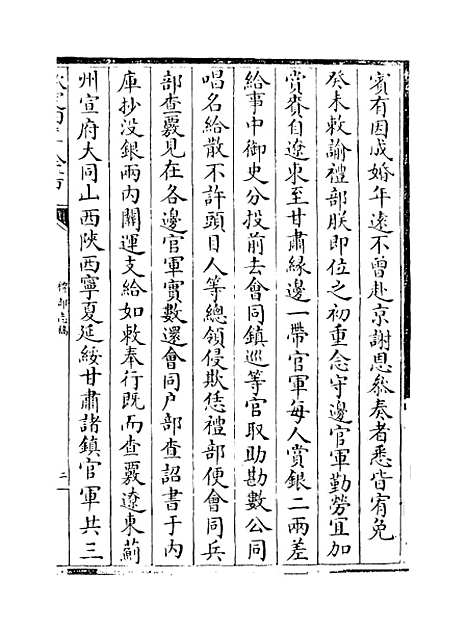 賔有因成婚年逺不曽赴京謝恩叅奏者悉皆宥免
癸未敕諭禮部朕即位之初重念守邊官軍勤勞宜加
賞賚自遼東至甘肅縁邊一帶官軍每人賞銀二兩差
給事中御史分投前去會同鎮巡等官取勘數公同
唱名給散不許頭目人等總領侵欺恁禮部便會同兵
部查覈見在各邊官軍實數還會同户部查詔書于内
庫抄没銀兩内關運支給如敕奉行既而查覈遼東薊
州宣府大同山西陜西寧夏延綏甘肅諸鎮官軍共三
禮部志稿
二